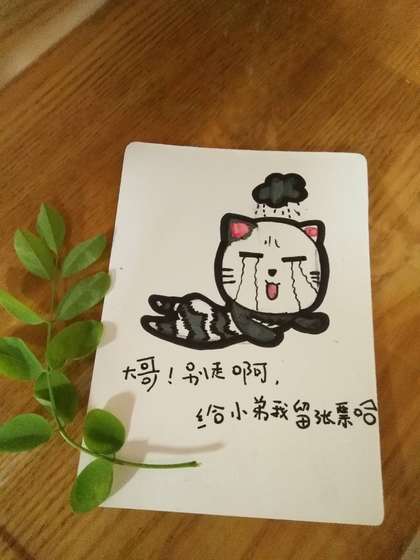 大哥！别走啊，
给小弟我留张票哈